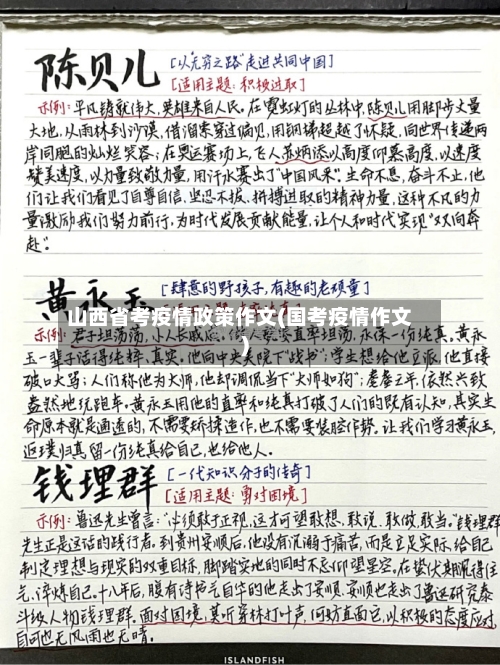 陈贝儿
[以"无穷之路"走进共同中国]
[适用主题:积极进取]
示例:平凡铸就伟大,英雄来自人民。在霓虹灯的丛林中,陈贝儿用脚步丈量
大地,从雨林到沙漠,借溜索穿过偏见,用钢梯超越了怀疑,向世界传递两
岸同胞的灿烂笑容;在奥运赛场上,飞人苏炳添以高度仰慕高度,以速度
赞美速度,以力量致敬力量,用汗水出了"中国风采"。生命不息,奋斗不止,他
们让我们看见了自尊自信、坚忍不拔、拼搏进取的精神力量,这种不凡的力
量激励我们努力前行,为时代发展贡献能量,让个人和时代实现"双向奔
赴"。
黄永玉
[肆意的野孩子,有趣的老顽童]
山西省考疫情政策作文(国考疫情作文
)
示例:君子坦荡荡,小人长戚戚。直率坦荡,永保一份纯真。黄永
玉一辈子活得纯粹、真实。他向中央美院下"战书";学生想给他立派,他直接
破口大骂;人们称他为大师,他却调侃当下"大师如狗";耄耋之年,依然兴致
盎然地玩跑车。黄永玉用他的直率和纯真打破了人们的既有认知,其实生
命原本就是通透的,不需要矫揉造作,也不需要装腔作势。让我们学习黄永玉,
返璞归真留一份纯真给自己,也给他人。
钱理群
[一代知识分子的传奇]
[适用主题:勇对困境]
示例:鲁迅先生曾言:"必须敢于正视,这才可望敢想、敢说、敢做、敢当。"钱理群
先生正是这话的践行者。到贵州安顺后,他没有沉溺于痛苦,而是立足实际,给自己
制定理想与现实的双重目标,脚踏实地的同时不忘仰望星空。在蛰伏期沉得住
气,淬炼自己。十八年后,腹有诗书气自华的他走出了安顺,安顺也走出了鲁迅研究泰
斗级人物钱理群。面对困境,莫听穿林打叶声,何妨直面它,以积极的态度应对,
自可也无风雨也无晴。
ISLANDFISH